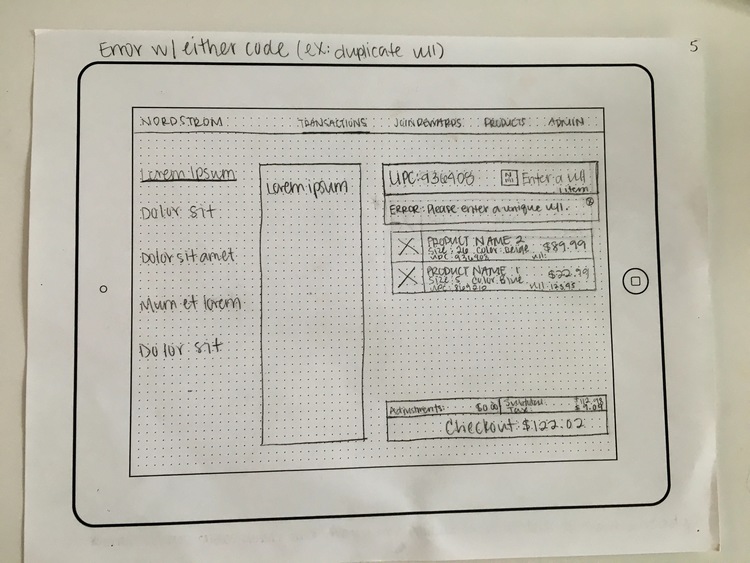 Error w/ either code (ex: duplicate VII)
5
NORDSTROM TRANSACTIONS JOIN REWARDS PRODUCTS ADMIN
Lorem Ipsum
Dolor sit
Dolor sit amet
Mum et lorem
Dolor sit
Lorem ipsum
UPC: 936908 Enter a VII
1 item
ERROR: Please enter a unique VII.
PRODUCT NAME 2 $89.99
Size: 26 Color: Beige
UPC: 936908 VII:
PRODUCT NAME 1 $22.99
Size: 5 Color: Blue
UPC: VII: 12345
Adjustments: $0.00 Subtotal: $112.98
Tax: $9.04
Checkout: $122.02